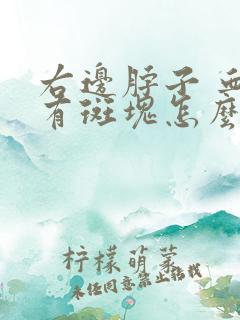 右邊脖子
有斑塊怎麼
柠檬萌萝
未经同意禁止转载